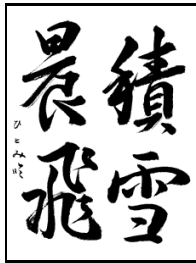 積雪
晨飛
ひとみ臨